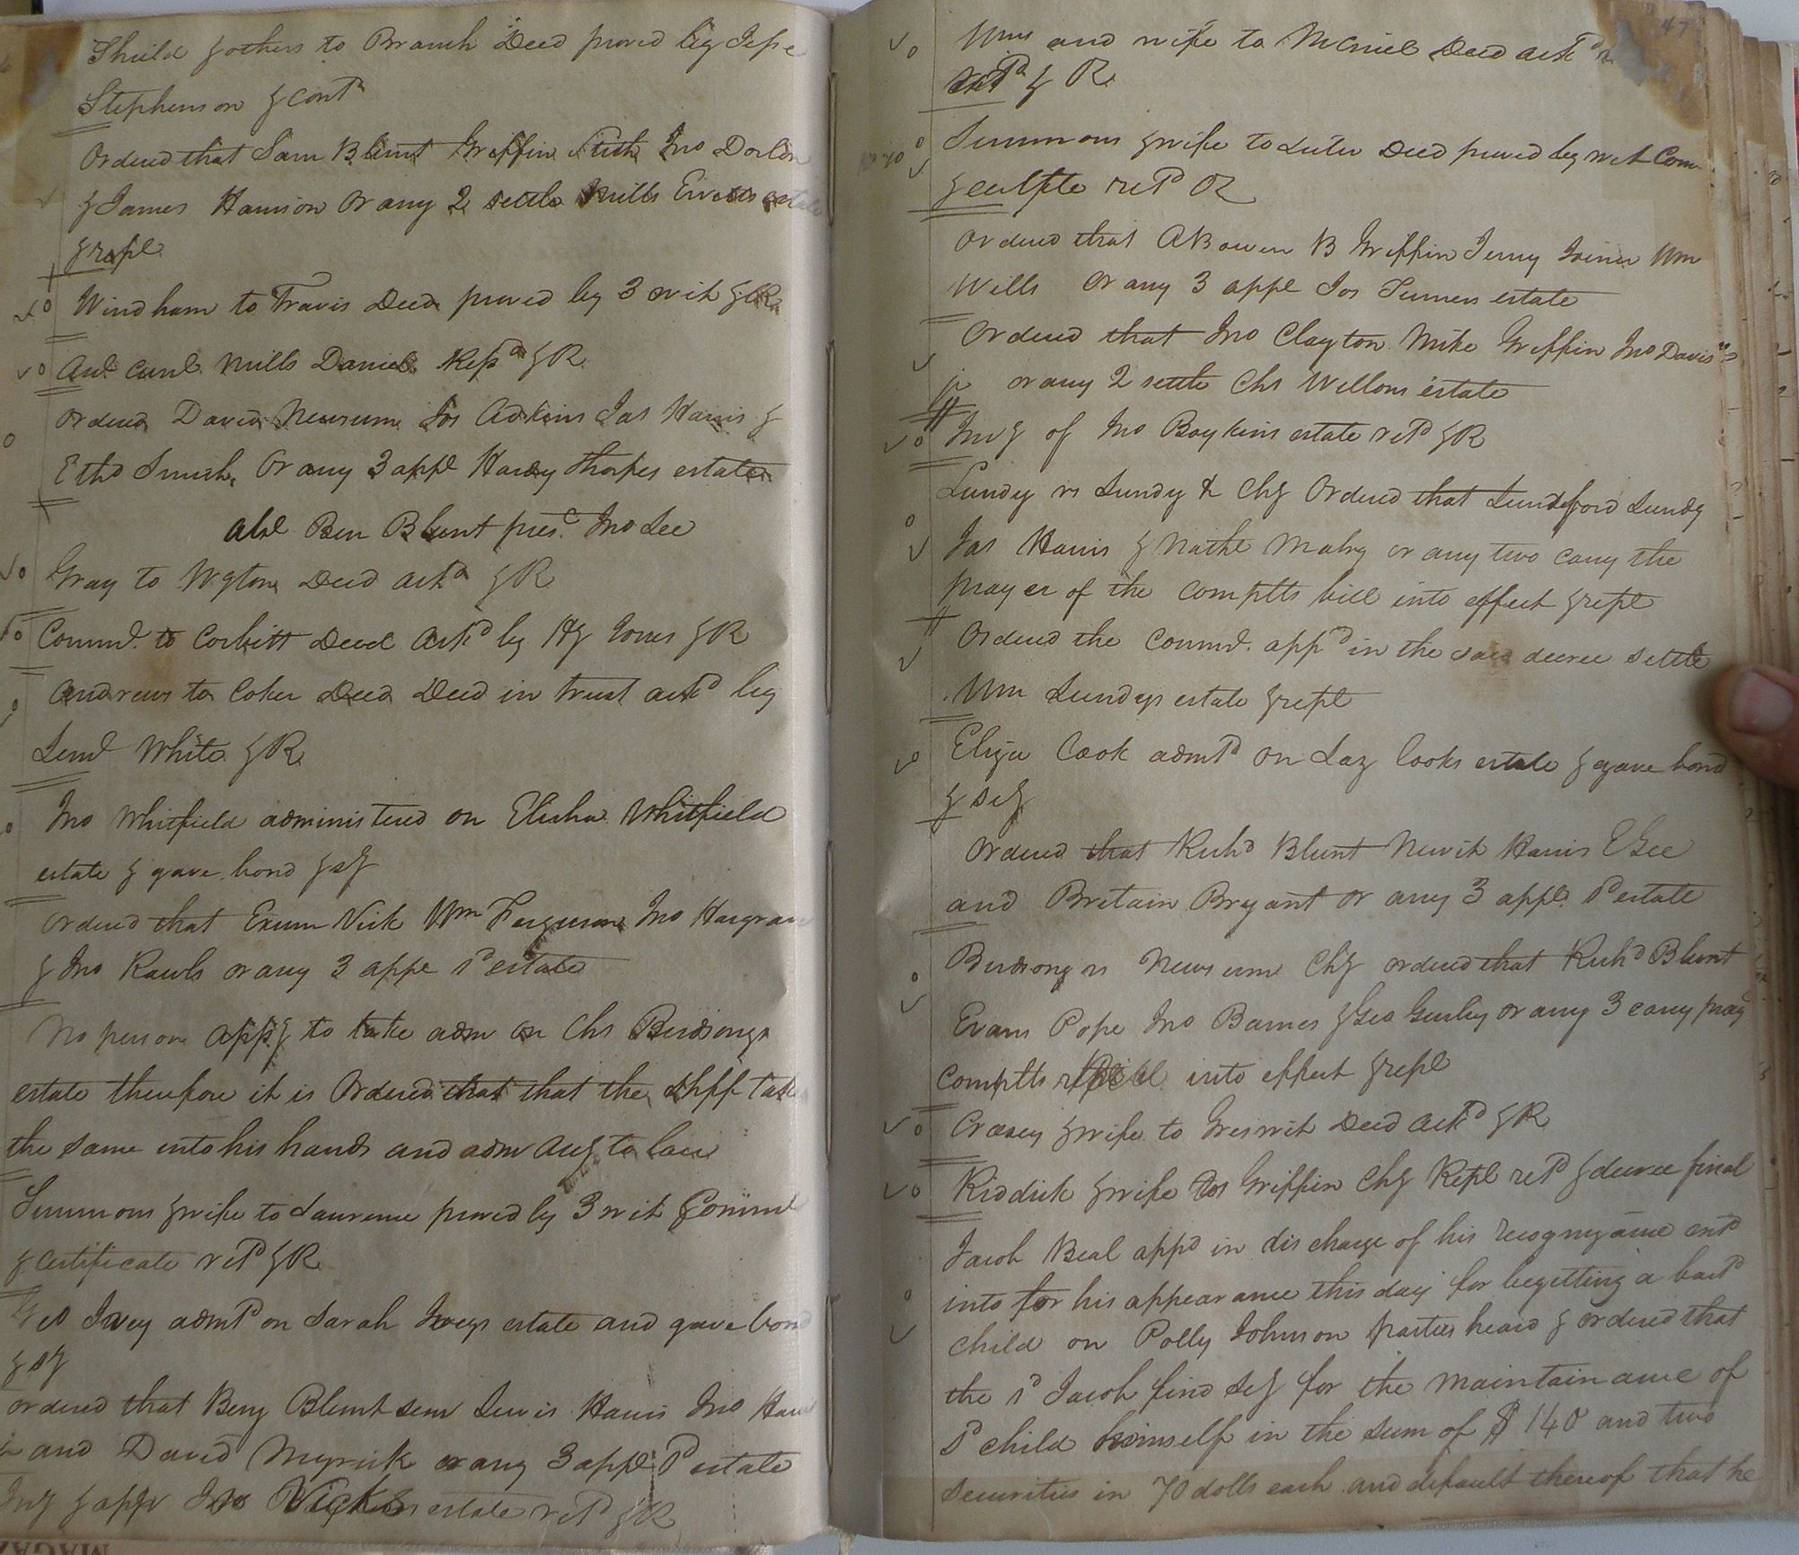 Shield & others to Branch Deed proved by Jesse
Stephenson & cont.d
Ordered that Sam Blunt Griffin Stith Jno
& James Harrison or any 2 settle Mills estate
& repl
Windham to Travis Deed proved by 3 wit & R
Aud. Mills Daniel & R
Ordered David Newsum Jos Adkins Jas Harris &
Eth.d Smith or any 3 appl Hardy Thorpes estate
Abs Ben Blunt pres.t Jno Lee
Gray to Deed ack.d & R
Comm.d to Corbitt Deed ack.d by Hy Jones & R
Andrews to Coker Deed Deed in trust ack.d by
Lem.l White & R
Jno Whitfield administered on Elisha Whitfield
estate & gave bond & sy
Ordered that Exum Vick Wm Ferguson Jno Hargrave
& Jno Rawls or any 3 appl s.d estate
No person appy to take adm on Chs Birdsongs
estate therefore it is Ordered that that the Shff take
the same into his hands and adm accy to law
Simmons & wife to Laurence proved by 3 wit Comm
& certificate ret.d & R
Ivey adm.d on Sarah Iveys estate and gave bond
& sy
ordered that Benj Blunt sen Lewis Harris Jno
and David Myrick or any 3 appl s.d estate
Invy & appr Jno estate ret.d & R
47
Wms and wife to McNiel Deed ack.d
ret.d & R
Simmons & wife to Luter Deed proved by wit Com
& certfte ret.d R
Ordered that A Bowen B Griffin Jerry Joiner Wm
Wills or any 3 appl Jos Turners estate
Ordered that Jno Clayton Mike Griffin Jno Davis
jr or any 2 settle Chs Wellons estate
Invy of Jno Boykins estate ret.d & R
Lundy vs Lundy Chy Ordered that Lundsford Lundy
Jas Harris & Nathl Mabry or any two carry the
prayer of the complts bill into effect & repl
Ordered the Comm.d app.d in the said decree settle
Wm Lundys estate & repl
Eliza Cook adm.d on Laz Cooks estate & gave bond
& scy
Ordered that Rich.d Blunt Newit Harris E Gee
and Britain Bryant or any 3 appl s.d estate
Birdsong vs Newsum Chy ordered that Rich.d Blunt
Evans Pope Jno Barnes & Geo Gurley or any 3 carry pray
complts bill into effect & repl
& wife to Deed ack.d & R
Riddick & wife vs Griffin Chy Repl ret.d & decree final
Jacob Beal app.d in discharge of his recognizance ent.d
into for his appearance this day for begetting a bast.d
child on Polly Johnson parties heard & ordered that
the s.d Jacob find scy for the maintainance of
s.d child himself in the sum of $140 and two
securities in 70 dolls each and default thereof that he